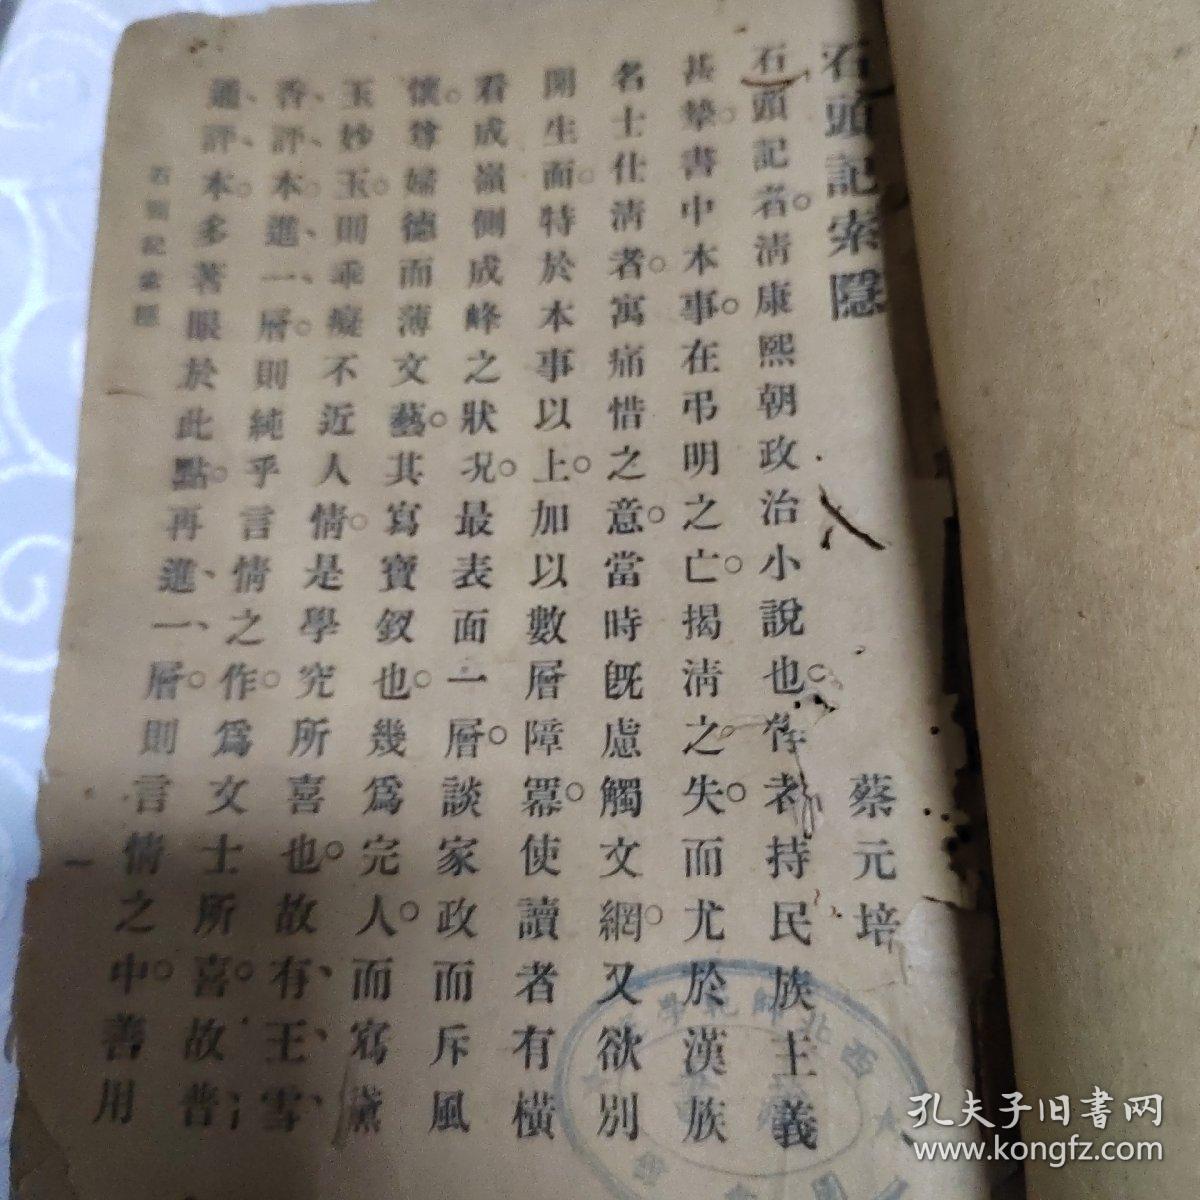 石頭記索隱
蔡元培
石頭記者。清康熙朝政治小說也。作者持民族主義
甚摯。書中本事。在弔明之亡。揭清之失。而尤於漢族
名士仕清者。寓痛惜之意。當時既慮觸文網。又欲別
開生面。特於本事以上。加以數層障冪。使讀者有橫
看成嶺側成峰之狀況。最表面一層。談家政而斥風
懷。尊婦德而薄文藝。其寫寶釵也。幾爲完人。而寫黛
玉妙玉。則乖癡不近人情。是學究所喜也。故有、王、雪、
香、評、本。進、一、層。則純乎言情之作。爲文士所喜。故普、
通、評、本。多著眼於此點。再進、一、層。則言情之中。善用
石頭記索隱
一
西北師範學
孔夫子旧書网
www.kongfz.com